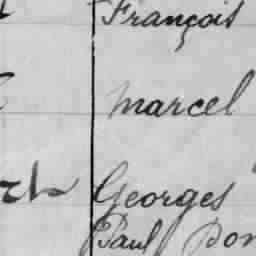 François
Marcel
Georges
Paul